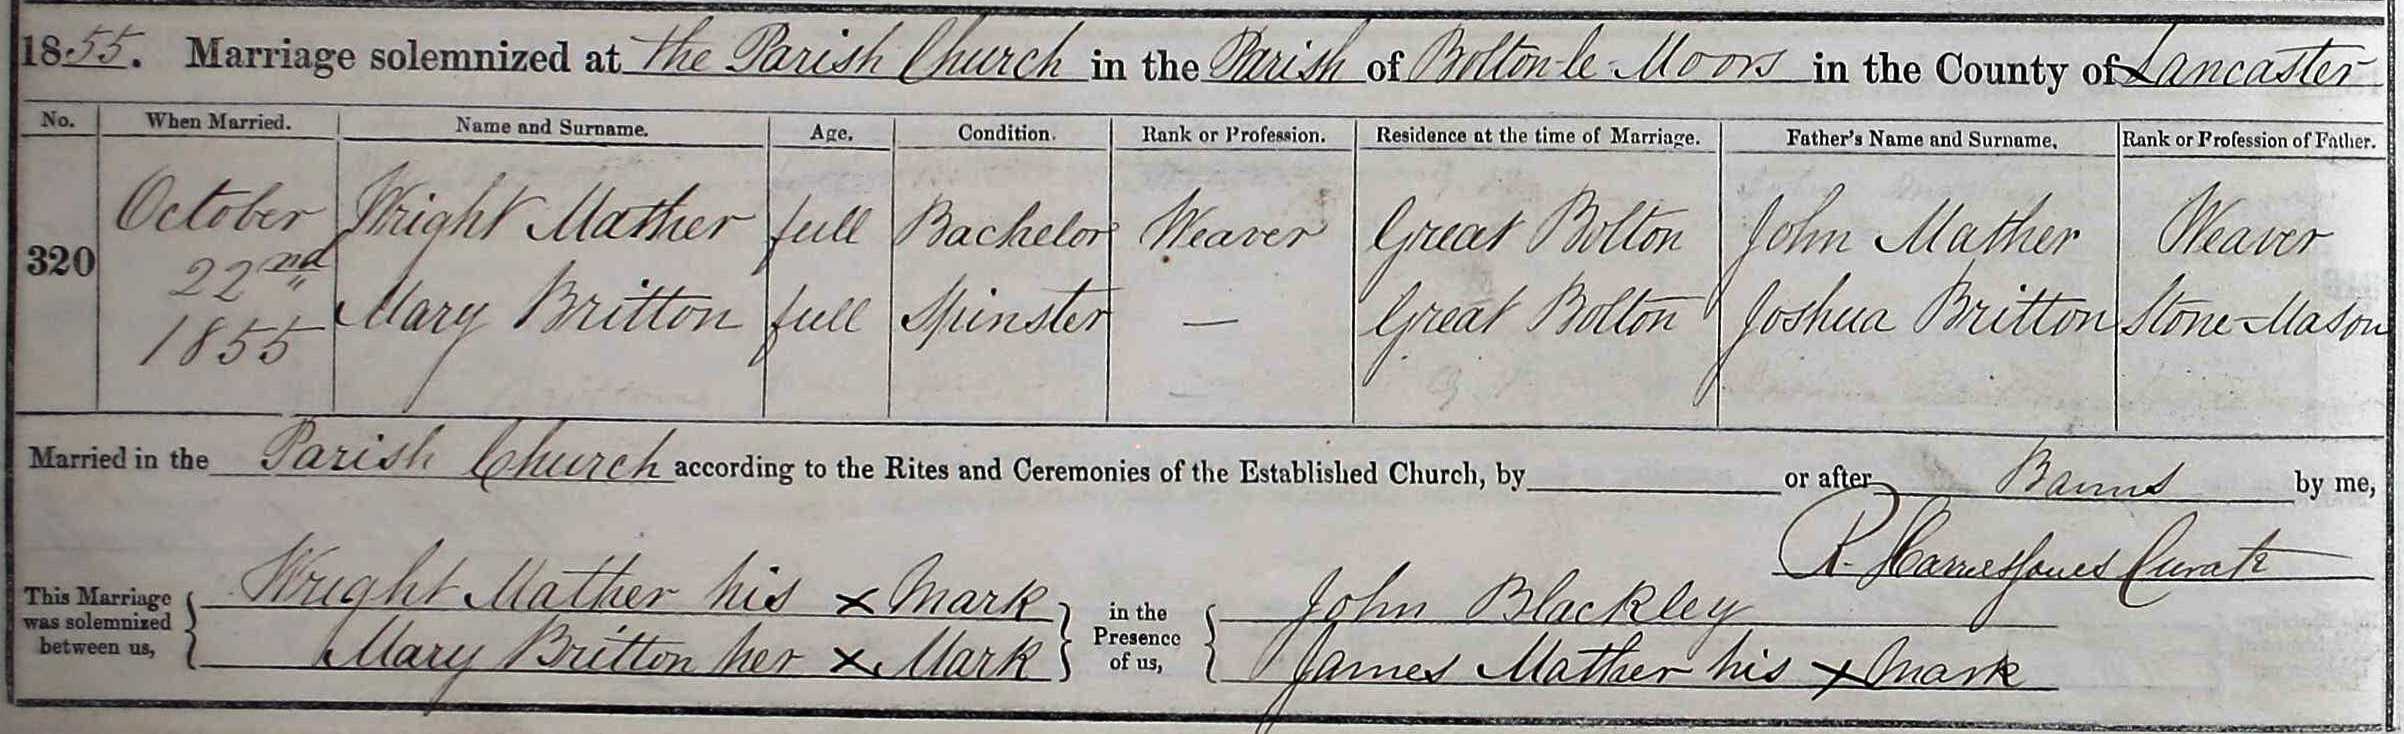 1855. Marriage solemnized at the Parish Church in the Parish of Bolton-le-Moors in the County of Lancaster
No. When Married. Name and Surname. Age. Condition. Rank or Profession. Residence at the time of Marriage. Father's Name and Surname. Rank or Profession of Father.
320 October 22nd 1855
Wright Mather full Bachelor Weaver Great Bolton John Mather Weaver
Mary Britton full Spinster — Great Bolton Joshua Britton Stone-Mason
Married in the Parish Church according to the Rites and Ceremonies of the Established Church, by or after Banns by me,
R. Jones Curate
This Marriage was solemnized between us, { Wright Mather his x Mark } in the Presence of us, { John Blackley
Mary Britton her x Mark James Mather his x Mark